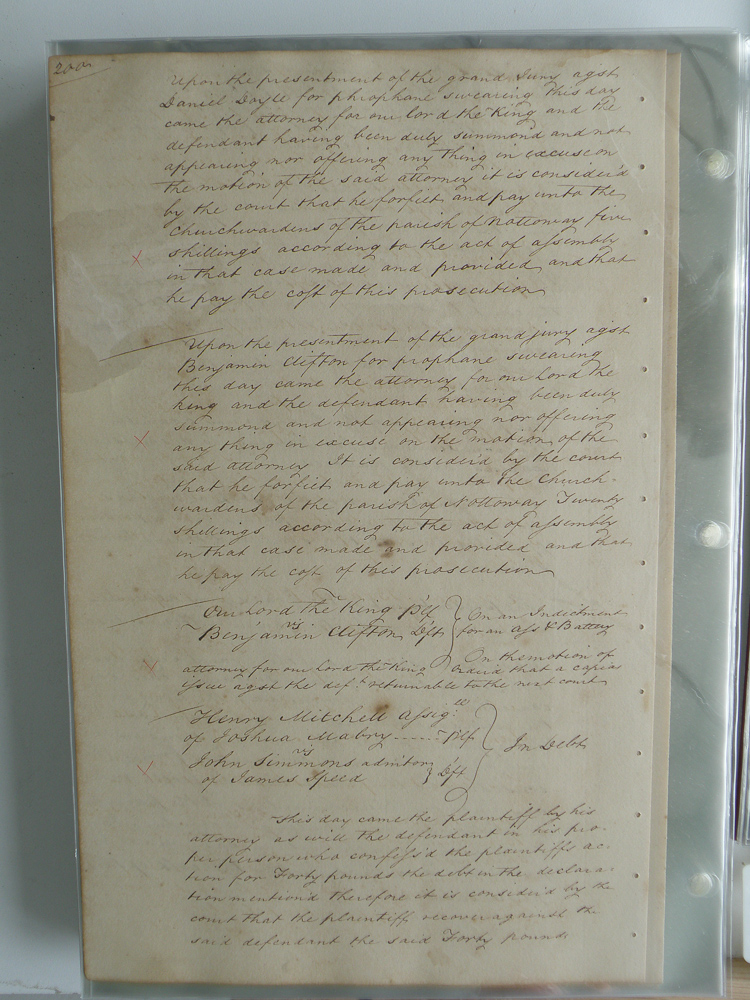 200
Upon the presentment of the grand Jury agst
Daniel Doyle for phrophane swearing this day
came the attorney for our lord the King and the
defendant having been duly summond and not
appearing nor offering any thing in excuse on
the motion of the said attorney it is consider'd
by the court that he forfiet and pay unto the
Churchwardens of the parish of Nottoway five
shillings according to the act of assembly
in that case made and provided and that
he pay the cost of this prosecution
Upon the presentment of the grand jury agst
Benjamin Clifton for prophane swearing
this day came the attorney for our Lord the
King and the defendant having been duly
summond and not appearing nor offering
any thing in excuse on the motion of the
said attorney It is consider'd by the court
that he forfiet and pay unto the Church-
wardens of the parish of Nottoway Twenty
shillings according to the act of assembly
in that case made and provided and that
he pay the cost of this prosecution
Our Lord the King Plf
vs
Benjamin Clifton Dft
On an Indictment
for an Ass & Battery
On the motion of
attorney for our lord the King Order'd that a capias
issue agst the deft returnable to the next court
Henry Mitchell assigee
of Joshua Mabry ---- Plf
vs
John Simmons admitor
of James Speed Dft
In Debt
This day came the plaintiff by his
attorney as will the defendant in his pro-
per person who confess'd the plaintiffs ac-
tion for Forty pounds the debt in the declara-
tion mention'd therefore it is consider'd by the
court that the plaintiff recover against the
said defendant the said Forty pounds